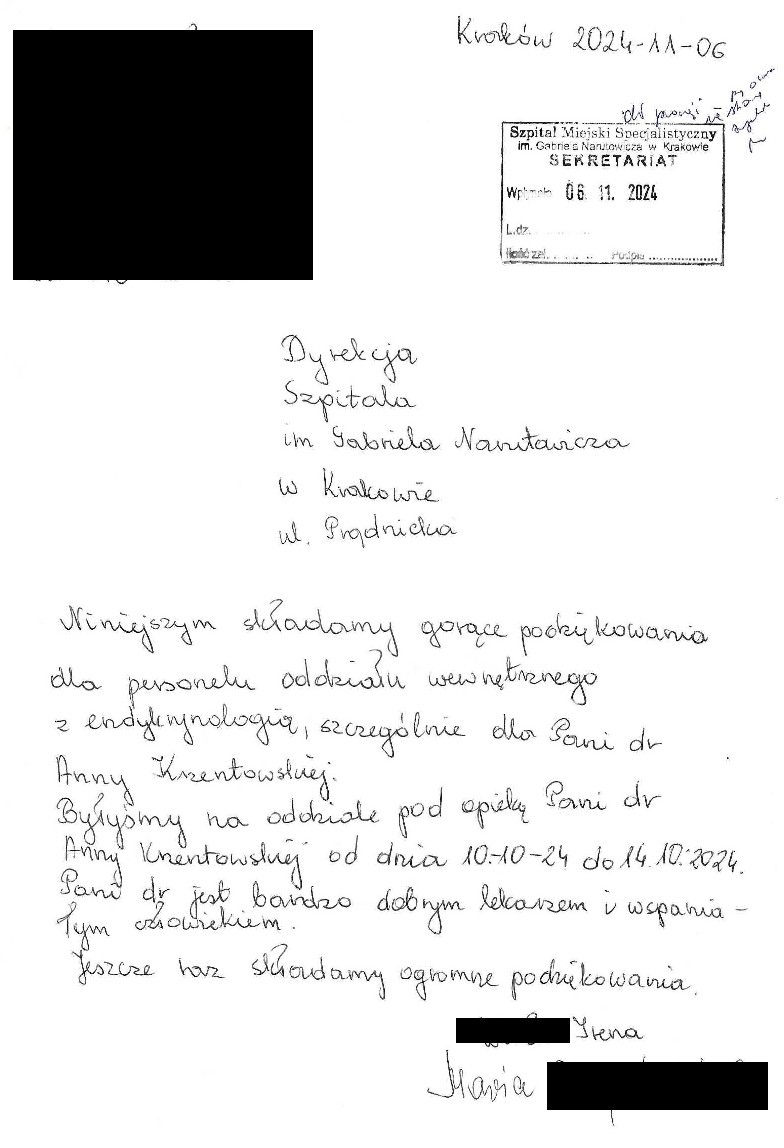 Kraków 2024-11-06
Szpital Miejski Specjalistyczny
im. Gabriela Narutowicza w Krakowie
SEKRETARIAT
Wpłynęło 06. 11. 2024
L.dz.
Ilość zał. Podpis
Dyrekcja
Szpitala
im Gabriela Narutowicza
w Krakowie
ul. Prądnicka
Niniejszym składamy gorące podziękowania
dla personelu oddziału wewnętrznego
z endykrynologią, szczególnie dla Pani dr
Anny Krzentowskiej.
Byłyśmy na oddziale pod opieką Pani dr
Anny Krzentowskiej od dnia 10.-10-24 do 14.10.2024.
Pani dr jest bardzo dobrym lekarzem i wspania-
łym człowiekiem.
Jeszcze raz składamy ogromne podziękowania.
Irena
Maria